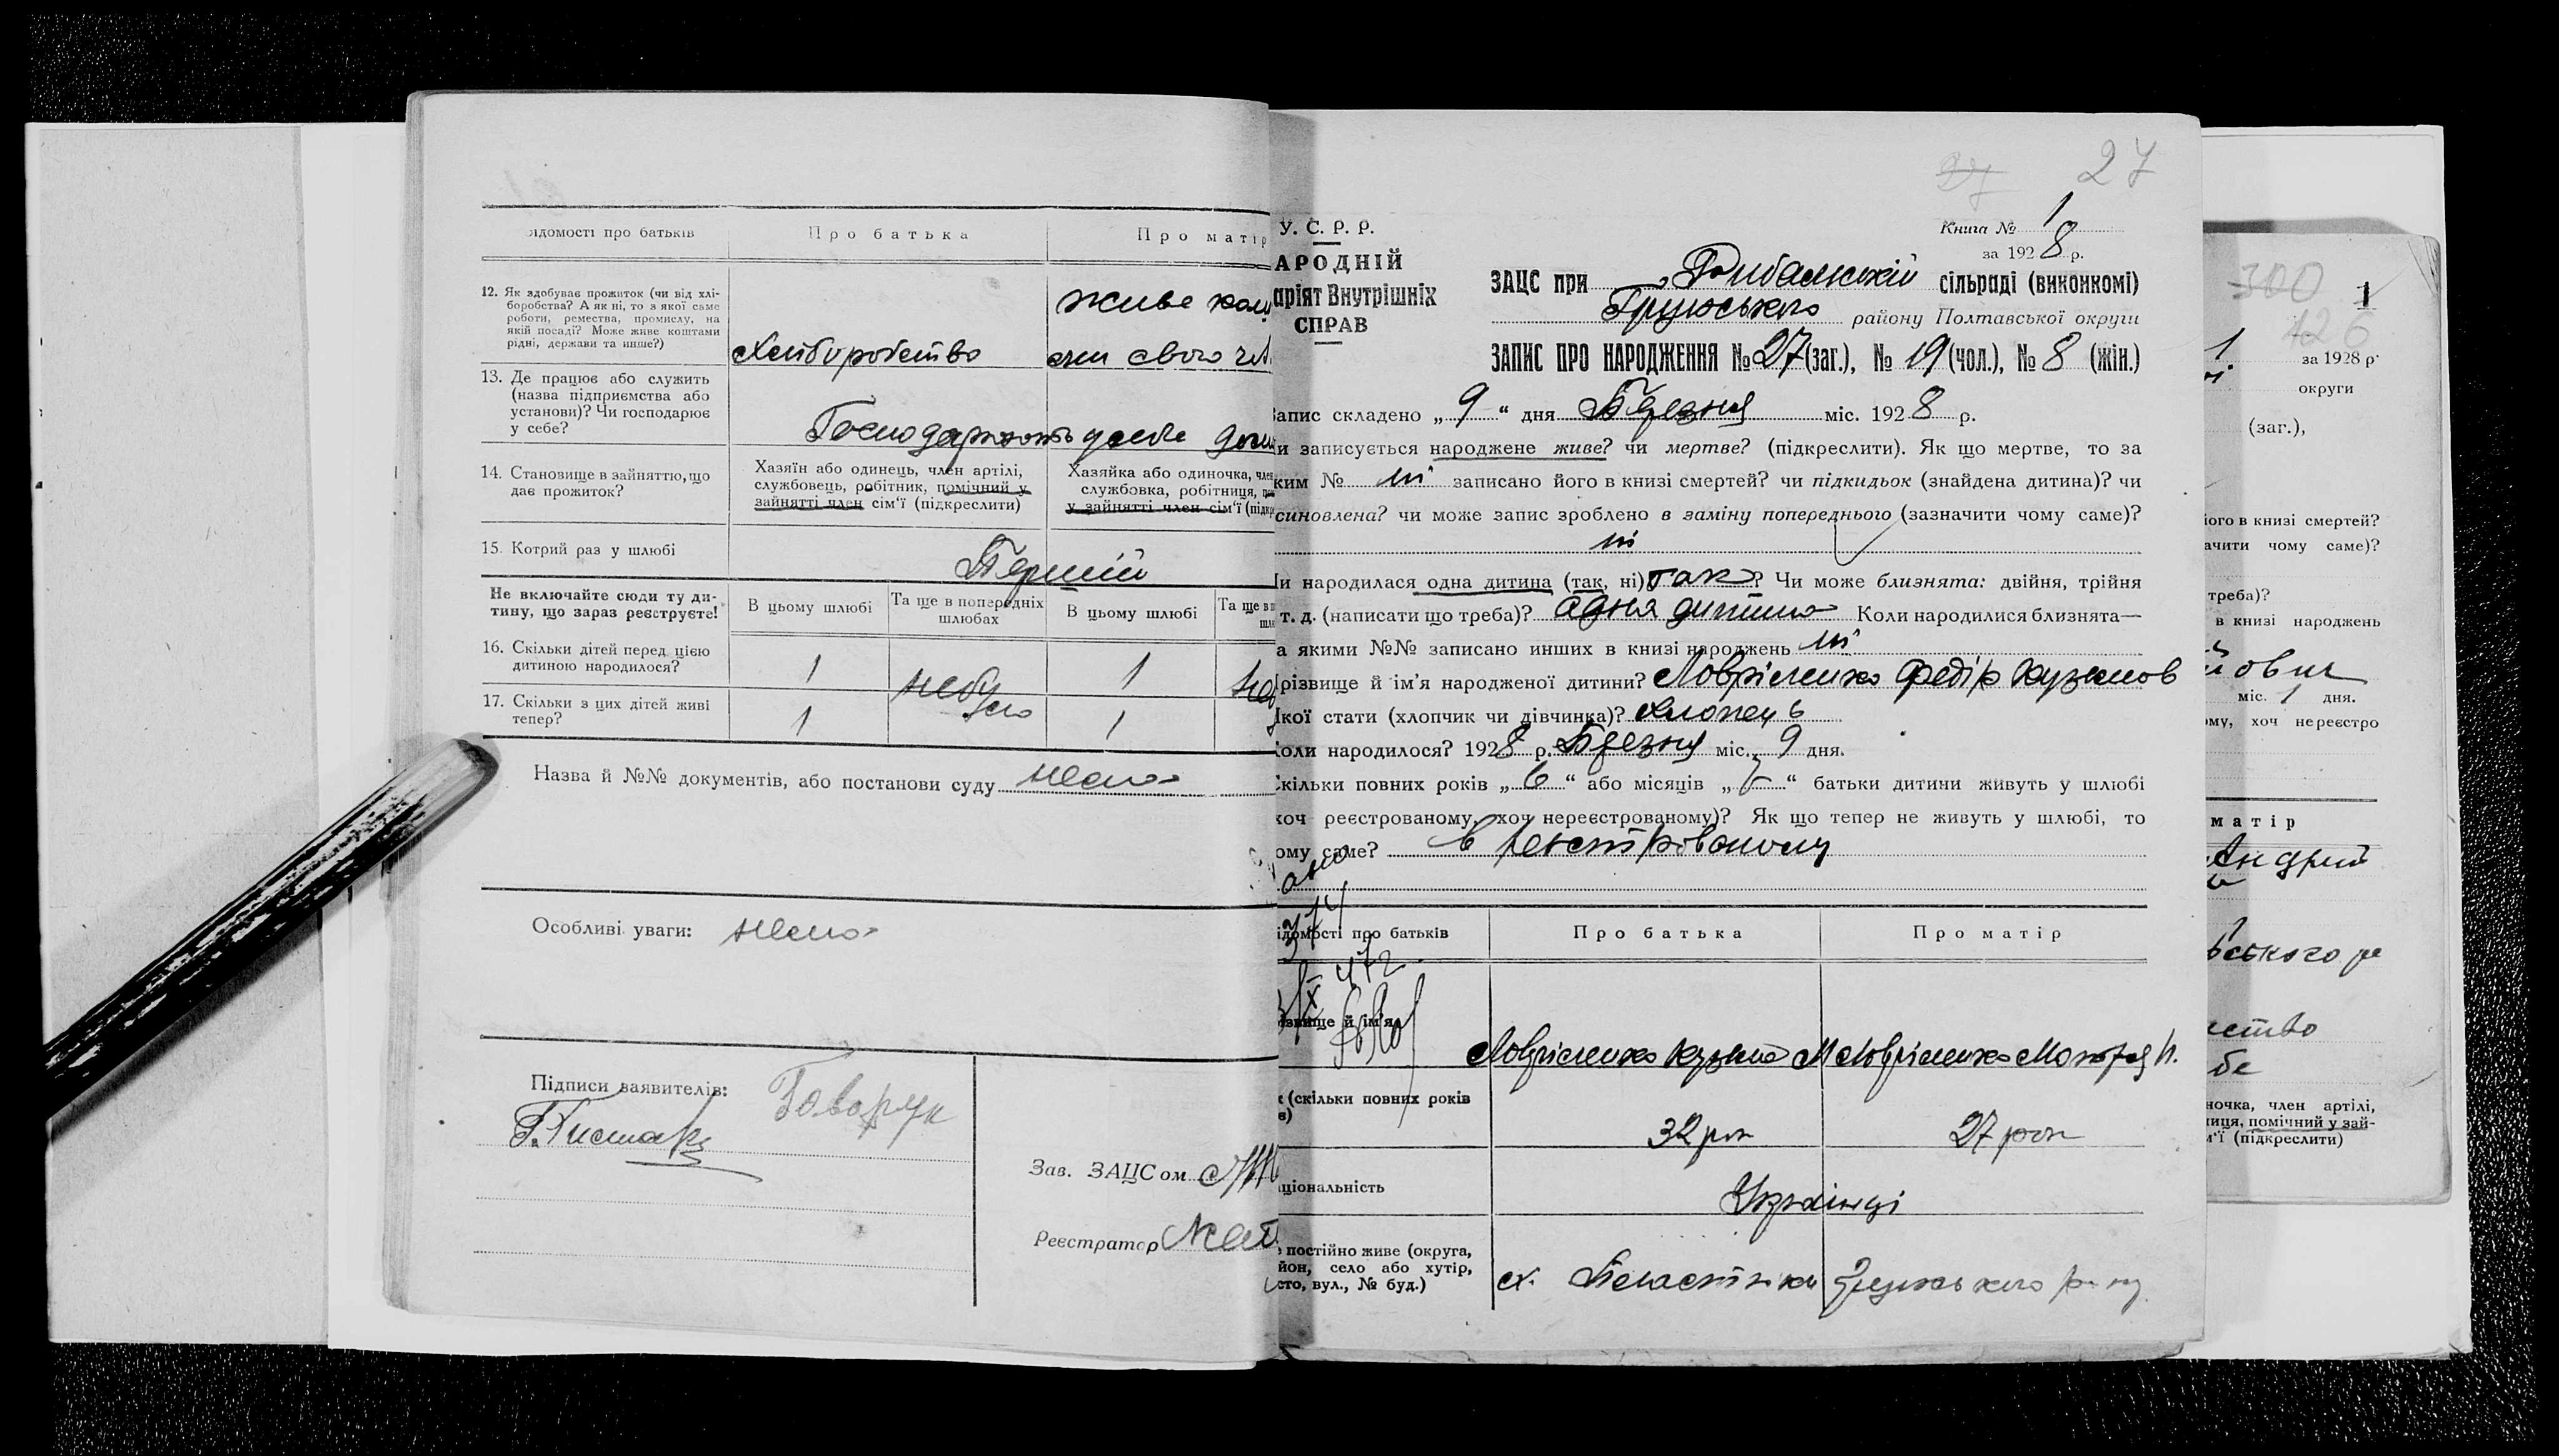 ідомості про батьків
Про батька
Про матір
12. Як здобуває прожиток (чи від хлі-
боробства? А як ні, то з якої саме
роботи, ремества, промислу, на
якій посаді? Може живе коштами
рідні, держави та инше?)
Хліборобство
живе кош
13. Де працює або служить
(назва підприємства або
установи)? Чи господарює
у себе?
Господарюють
14. Становище в зайняттю, що
дає прожиток?
Хазяїн або одинець, член артілі,
службовець, робітник, помічний у
зайнятті член сім'ї (підкреслити)
Хазяйка або одиночка, член
службовка, робітниця, по
у зайнятті член сім'ї (підкр
15. Котрий раз у шлюбі
Перший
Не включайте сюди ту ди-
тину, що зараз реєструєте!
В цьому шлюбі
Та ще в попередніх
шлюбах
В цьому шлюбі
Та ще в п
шлю
16. Скільки дітей перед цією
дитиною народилося?
1
небуло
1
17. Скільки з цих дітей живі
тепер?
1
1
Назва й №№ документів, або постанови суду нема
Особливі уваги: нема
Підписи заявителів:
Говорун
Зав. ЗАЦСом
Реєстратор
27
27
У. С. Р. Р.
АРОДНІЙ
аріят Внутрішніх
СПРАВ
Книга № 1
за 1928 р.
ЗАЦС при Рибальській сільраді (виконкомі)
Грунського району Полтавської округи
ЗАПИС ПРО НАРОДЖЕННЯ № 27 (заг.), № 19 (чол.), № 8 (жін.)
Запис складено „ 9 “ дня Березня міс. 1928 р.
и записується народжене живе? чи мертве? (підкреслити). Як що мертве, то за
ким № ні записано його в книзі смертей? чи підкидьок (знайдена дитина)? чи
синовлена? чи може запис зроблено в заміну попереднього (зазначити чому саме)?
ні
и народилася одна дитина (так, ні) так? Чи може близнята: двійня, трійня
т. д. (написати що треба)? одна дитина Коли народилися близнята—
а якими №№ записано инших в книзі народжень ні
різвище й ім'я народженої дитини? Лавріненко Федір Кузьмов
кої стати (хлопчик чи дівчинка)? Хлопець
оли народилося? 1928 р. Березня міс. 9 дня.
кільки повних років „ 6 “ або місяців „ “ батьки дитини живуть у шлюбі
хоч реєстрованому, хоч нереєстрованому)? Як що тепер не живуть у шлюбі, то
ому саме? в реєстрованому
ідомості про батьків
Про батька
Про матір
ізвище й ім'я
Лавріненко Кузьма М
Лавріненко Мотря Н.
к (скільки повних років
є)
32 рок
27 рок
ціональність
Українці
е постійно живе (округа,
йон, село або хутір,
сто, вул., № буд.)
300
426
1
1
за 1928 р.
округи
(заг.),
ого в книзі смертей?
ачити чому саме)?
треба)?
в книзі народжень
ович
міс. 1 дня.
ому, хоч нереєстро
матір
Андрий
вського ра
ство
бе
ночка, член артілі,
ниця, помічний у зай-
м'ї (підкреслити)